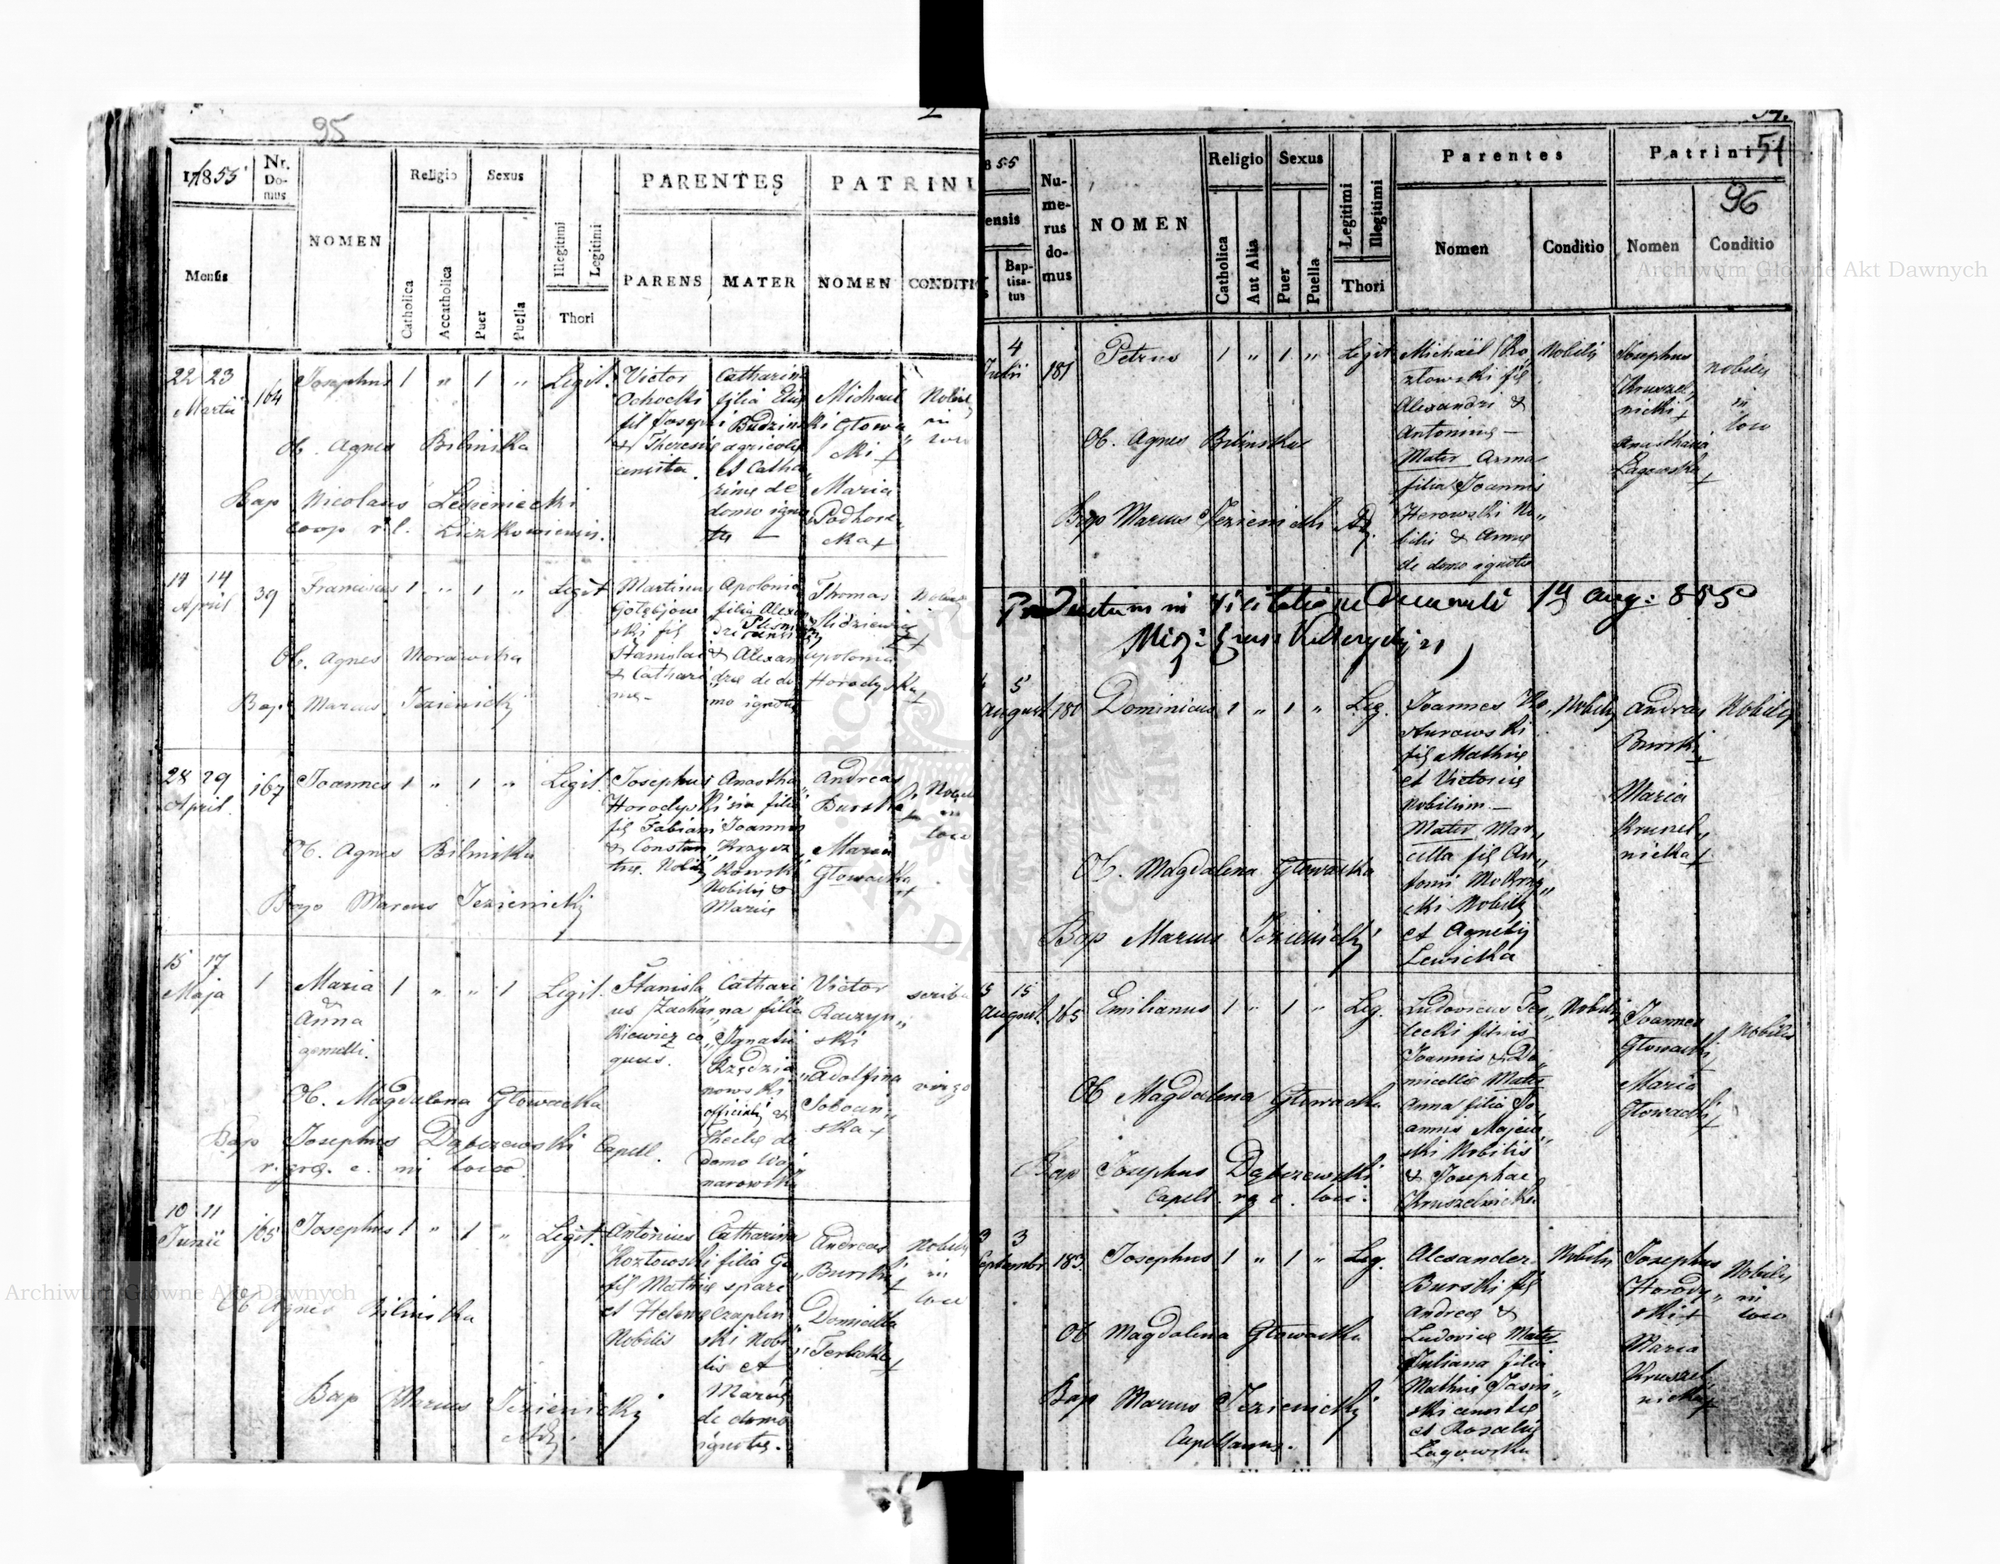 95
2
1855
Nr. Domus
NOMEN
Religio
Sexus
PARENTES
PATRINI
Mensis
Catholica
Accatholica
Puer
Puella
Illegitimi
Legitimi
Thori
PARENS
MATER
NOMEN
CONDITI
22 23 Martii
164
Josephus 1 " 1 " Legit.
Victor
Ochocki
fil Josephi
& Theresiae
Catharina
filia
Budzins
agricolae
et Catha
rinae de
domo igno
tae
Michael
Głowa
cki +
Maria
Podhore
cka +
Nobiles
in
loco
Ob. Agnes Bilinska
Bap Nicolaus
coop r. l.
14 14 April
39
Franciscus 1 " 1 " Legit
Martinus
Gołębiow
ski fil
Stanislai
& Cathari
nae
Apolonia
filia Alexan
& Alexan
drae de do
mo ignotae
Thomas
Apolonia
Horodyska +
Ob. Agnes Morawska
Bap Marcus Jezienicki
28 29 April.
167
Joannes 1 " 1 " Legit.
Josephus
Horodyski
fil Fabiani
& Constan
tiae Nobilis
Anastha
sia filia
Joannis
Krzycz
kowski
Nobilis &
Mariae
Andreas
Burski
+
Maria
Głowacka
+
in
loco
Ob. Agnes Bilinska
Bap Marcus Jezienicki
15 17 Maja
1
Maria
&
Anna
gemelli.
1 " " 1 Legit.
Stanisla
us Zachar
kiewicz co
quus.
Cathari
na filia
Ignatii
Rzędzia
nowski
officialis &
Theclae de
domo Woj
narowska
Victor
Raczyn
ski
Adolfina
Soboun
ska +
scriba
virgo
Ob. Magdalena Głowacka
Bap Josephus Dąbczewski Capell.
r. gr. c. in loco
10 11 Junii
165
Josephus 1 " 1 " Legit.
Antonius
Kozłowski
fil Mathiae
et Helenae
Nobilis
Catharina
filia Ga
sparis
Czaplin
ski Nobi
lis et
Mariae
de domo
ignotae.
Andreas
Burski
+
Domicella
Terlecka
+
Nobiles
in
loco
Ob Agnes Bilinska
Bap Marcus Jezienicki
Adm.
54.
51
96
55
Numerus domus
NOMEN
Religio
Sexus
Parentes
Patrini
ensis
Baptisatus
Catholica
Aut Alia
Puer
Puella
Legitimi
Illegitimi
Thori
Nomen
Conditio
Nomen
Conditio
4 Julii
181
Petrus 1 " 1 " Legit
Michaël Ko
złowski fil
Alexandri &
Antoninae
Mater Anna
filia Joannis
Terowski No
bilis & Annae
de domo ignotae
Nobilis
Josephus
Kruszel
nicki +
Anasthasia
Łagowska
+
Nobiles
in
loco
Ob. Agnes Bilinska
Bap Marcus Jezienicki Ad.
Productum in Visitatione Decanali 14 Aug: 855
5 August
180
Dominicus 1 " 1 " Leg.
Joannes Ko
fil Mathiae
et Victoriae
Nobilum.
Mater Mar
cella fil An
tonii Mokrzy
cki Nobilis
et Agnetis
Lewicka
Nobilis
Andreas
Burski
Maria
Kruszel
nicka +
Nobiles
Ob. Magdalena Głowacka
Bap Marcus Jezienicki
15 August.
165
Emilianus 1 " 1 " Leg.
Ludovicus Ter
lecki filius
Joannis & Do
micellae Mater
Anna filia Jo
annis Majew
ski Nobilis
& Josephae
Kruszelnicka
Nobilis
Joannes
Głowacki
+
Maria
Głowacki
+
Nobiles
Ob Magdalena Głowacka
Bap Josephus Dąbczewski
Capell. r. g. c. loci.
3 3 Septembr
183.
Josephus 1 " 1 " Leg.
Alexander
Burski fil
Andreae &
Ludovicae Mater
Juliana filia
Mathiae Jasin
ski censitae
et Rosaliae
Łagowska
Nobilis
Josephus
Horody
ski +
Maria
Kruszel
nicka +
Nobiles
in
loco
Ob Magdalena Głowacka
Bap Marcus Jezienicki
Capellanus.
Archiwum Główne Akt Dawnych
Archiwum Główne Akt Dawnych